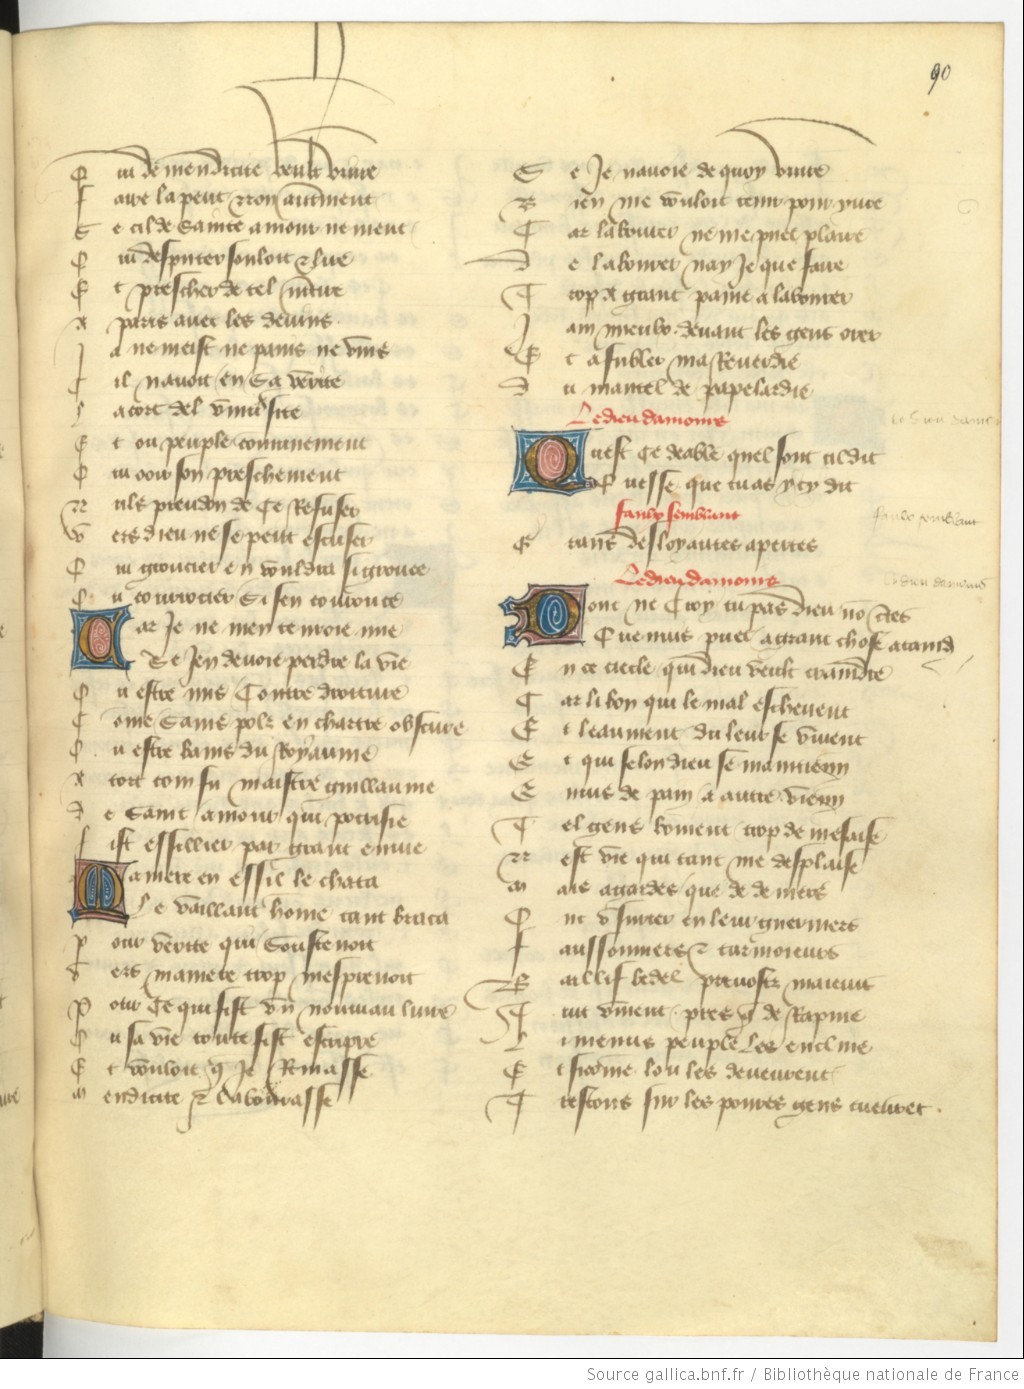 90
Qui de mendicite veult vivre
Faire la peut non autrement
Se cil de Sainte amour ne ment
Qui desputer souloit et lire
Et prescher de tel matire
A paris avec les devins
Ja ne meist ne pains ne vins
Cil navoit en Sa verite
Lacort del universite
Et ou peuple communement
Qui ooit son preschement
Nuls preudon de Ce Refuser
Vers dieu ne se peut escuser
Qui groucier en vouldra si grouce
Ou courroucier Si sen courouce
Car Je ne men tenroie mie
Se Jen devoie perdre la vie
Ou estre mis Contre droiture
Come Sains pols en chartre obscure
Ou estre banis du Royaume
A tort com fu maistre guillaume
De Saint amour qui pocrisie
Fist essillier par grant envie
Ma mere en essil le chaca
Le vaillant home tant braca
Pour verite qui Soustenoit
Vers ma mere trop mesprenoit
Pour Ce qui fist un nouviau livre
Ou sa vie toute fist escripre
Et vouloit q Je Reniasse
Mendicite et labourasse
Se Je navoie de quoy vivre
Bien me vouloit tenir pour yvre
Car labourer ne me puet plaire
De labourer nay Je que faire
Trop a grant paine a labourer
Jaim mieulx devant les gens orer
Et afubler ma Reverdie
Du mantel de papelardie
Le dieu damours
Le dieu damours
Quest Ce deable quel sont ti dit
Quesse que tu as y cy dit
Faulx semblant
faulx semblant
Grans desloyautes apertes
Le dieu damours
le dieu damours
Dont ne Croy tu pas dieu non certes
Que nuls puet a grant chose ataind
En ce siecle qui dieu veult craindre
Car li bon qui le mal eschevent
Et leaument du leur se vivent
Et qui selon dieu se maintienn
Envis de pain a autre vienn
Tel gens boivent trop de mesaise
Nest vie qui tant me desplaise
Mais agardes que de deniers
Ont usurier en leur guerniers
Faussonniers et termoieurs
Baillif bedel prevostz maieurs
Tuit vivent pres q de Rapine
Li menus peuple Les encline
Et si come lou les deveurent
Trestous sur les povres gens cueuret